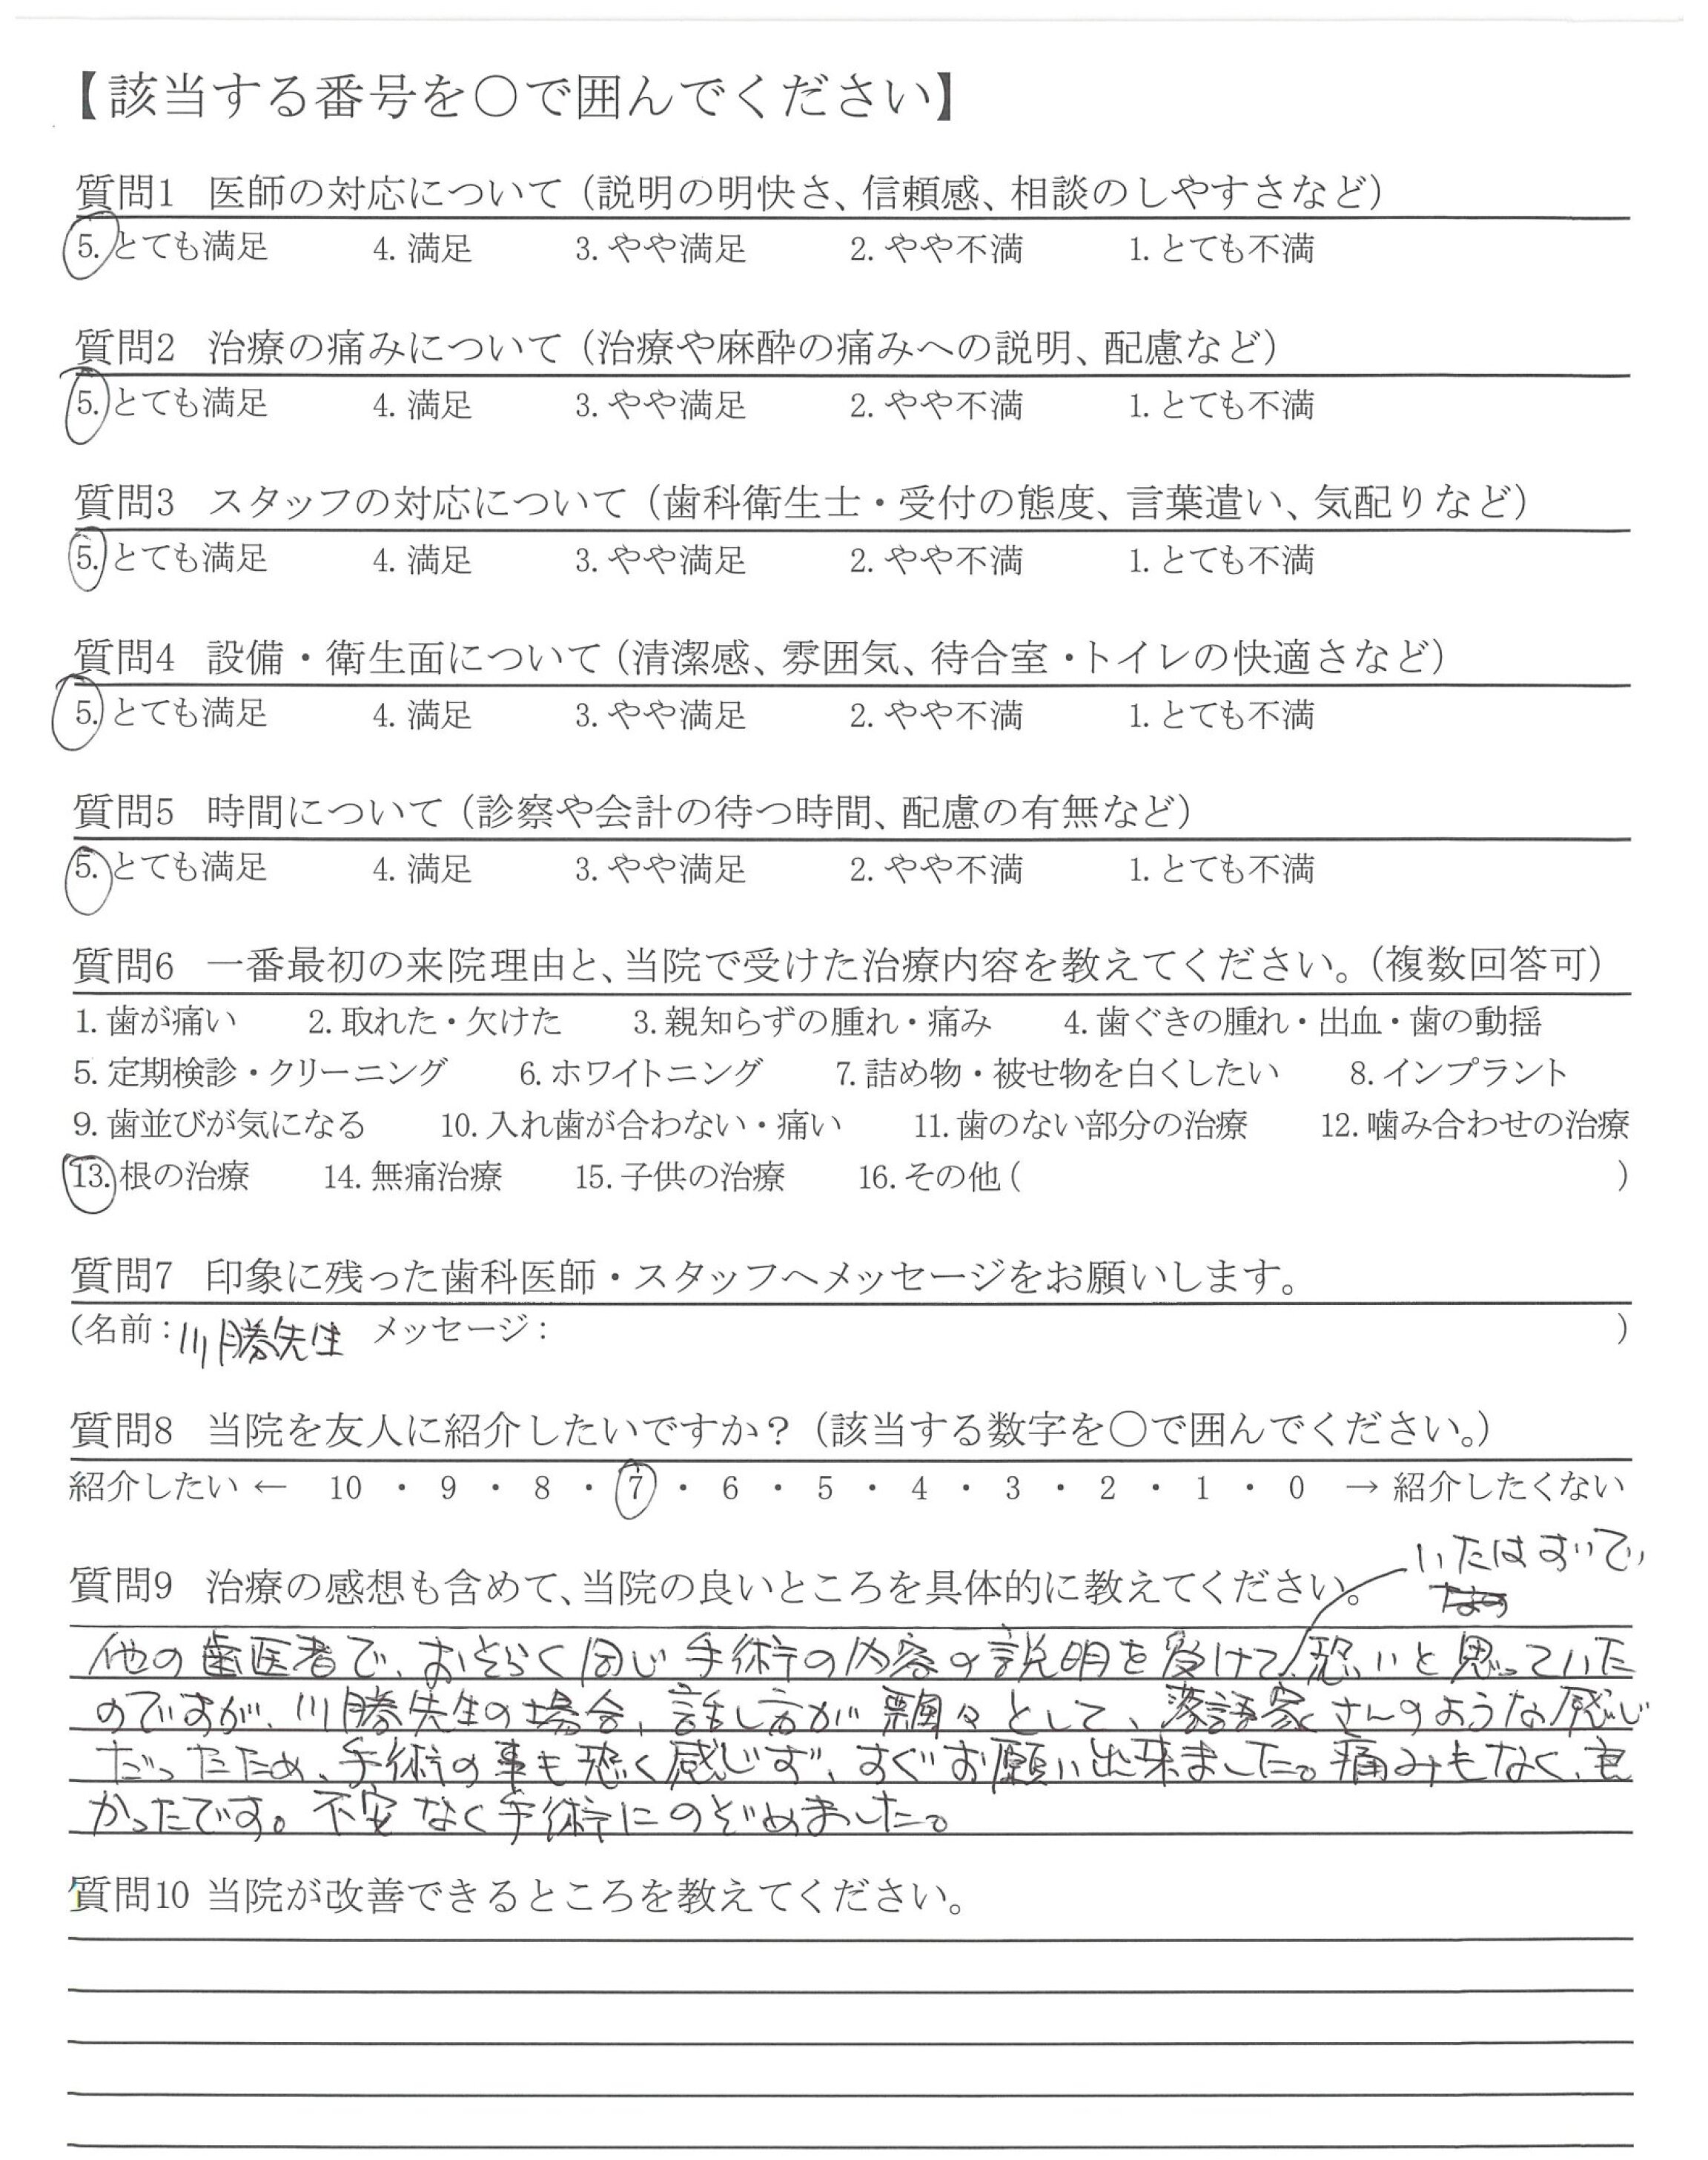 【該当する番号を○で囲んでください】
質問1 医師の対応について（説明の明快さ、信頼感、相談のしやすさなど）
5. とても満足 4. 満足 3. やや満足 2. やや不満 1. とても不満
質問2 治療の痛みについて（治療や麻酔の痛みへの説明、配慮など）
5. とても満足 4. 満足 3. やや満足 2. やや不満 1. とても不満
質問3 スタッフの対応について（歯科衛生士・受付の態度、言葉遣い、気配りなど）
5. とても満足 4. 満足 3. やや満足 2. やや不満 1. とても不満
質問4 設備・衛生面について（清潔感、雰囲気、待合室・トイレの快適さなど）
5. とても満足 4. 満足 3. やや満足 2. やや不満 1. とても不満
質問5 時間について（診察や会計の待つ時間、配慮の有無など）
5. とても満足 4. 満足 3. やや満足 2. やや不満 1. とても不満
質問6 一番最初の来院理由と、当院で受けた治療内容を教えてください。（複数回答可）
1. 歯が痛い 2. 取れた・欠けた 3. 親知らずの腫れ・痛み 4. 歯ぐきの腫れ・出血・歯の動揺
5. 定期検診・クリーニング 6. ホワイトニング 7. 詰め物・被せ物を白くしたい 8. インプラント
9. 歯並びが気になる 10. 入れ歯が合わない・痛い 11. 歯のない部分の治療 12. 噛み合わせの治療
13. 根の治療 14. 無痛治療 15. 子供の治療 16. その他（ ）
質問7 印象に残った歯科医師・スタッフへメッセージをお願いします。
（名前：川勝先生 メッセージ： ）
質問8 当院を友人に紹介したいですか？（該当する数字を○で囲んでください。）
紹介したい ← 10 ・ 9 ・ 8 ・ 7 ・ 6 ・ 5 ・ 4 ・ 3 ・ 2 ・ 1 ・ 0 → 紹介したくない
質問9 治療の感想も含めて、当院の良いところを具体的に教えてください。
いたはずで
他の歯医者で、おそらく同じ手術の内容の説明を受けて恐いと思っていた
のですが、川勝先生の場合、話し方が飄々として、落語家さんのような感じ
だったため、手術の事も恐く感じず、すぐお願い出来ました。痛みもなく、良
かったです。不安なく手術にのぞめました。
質問10 当院が改善できるところを教えてください。